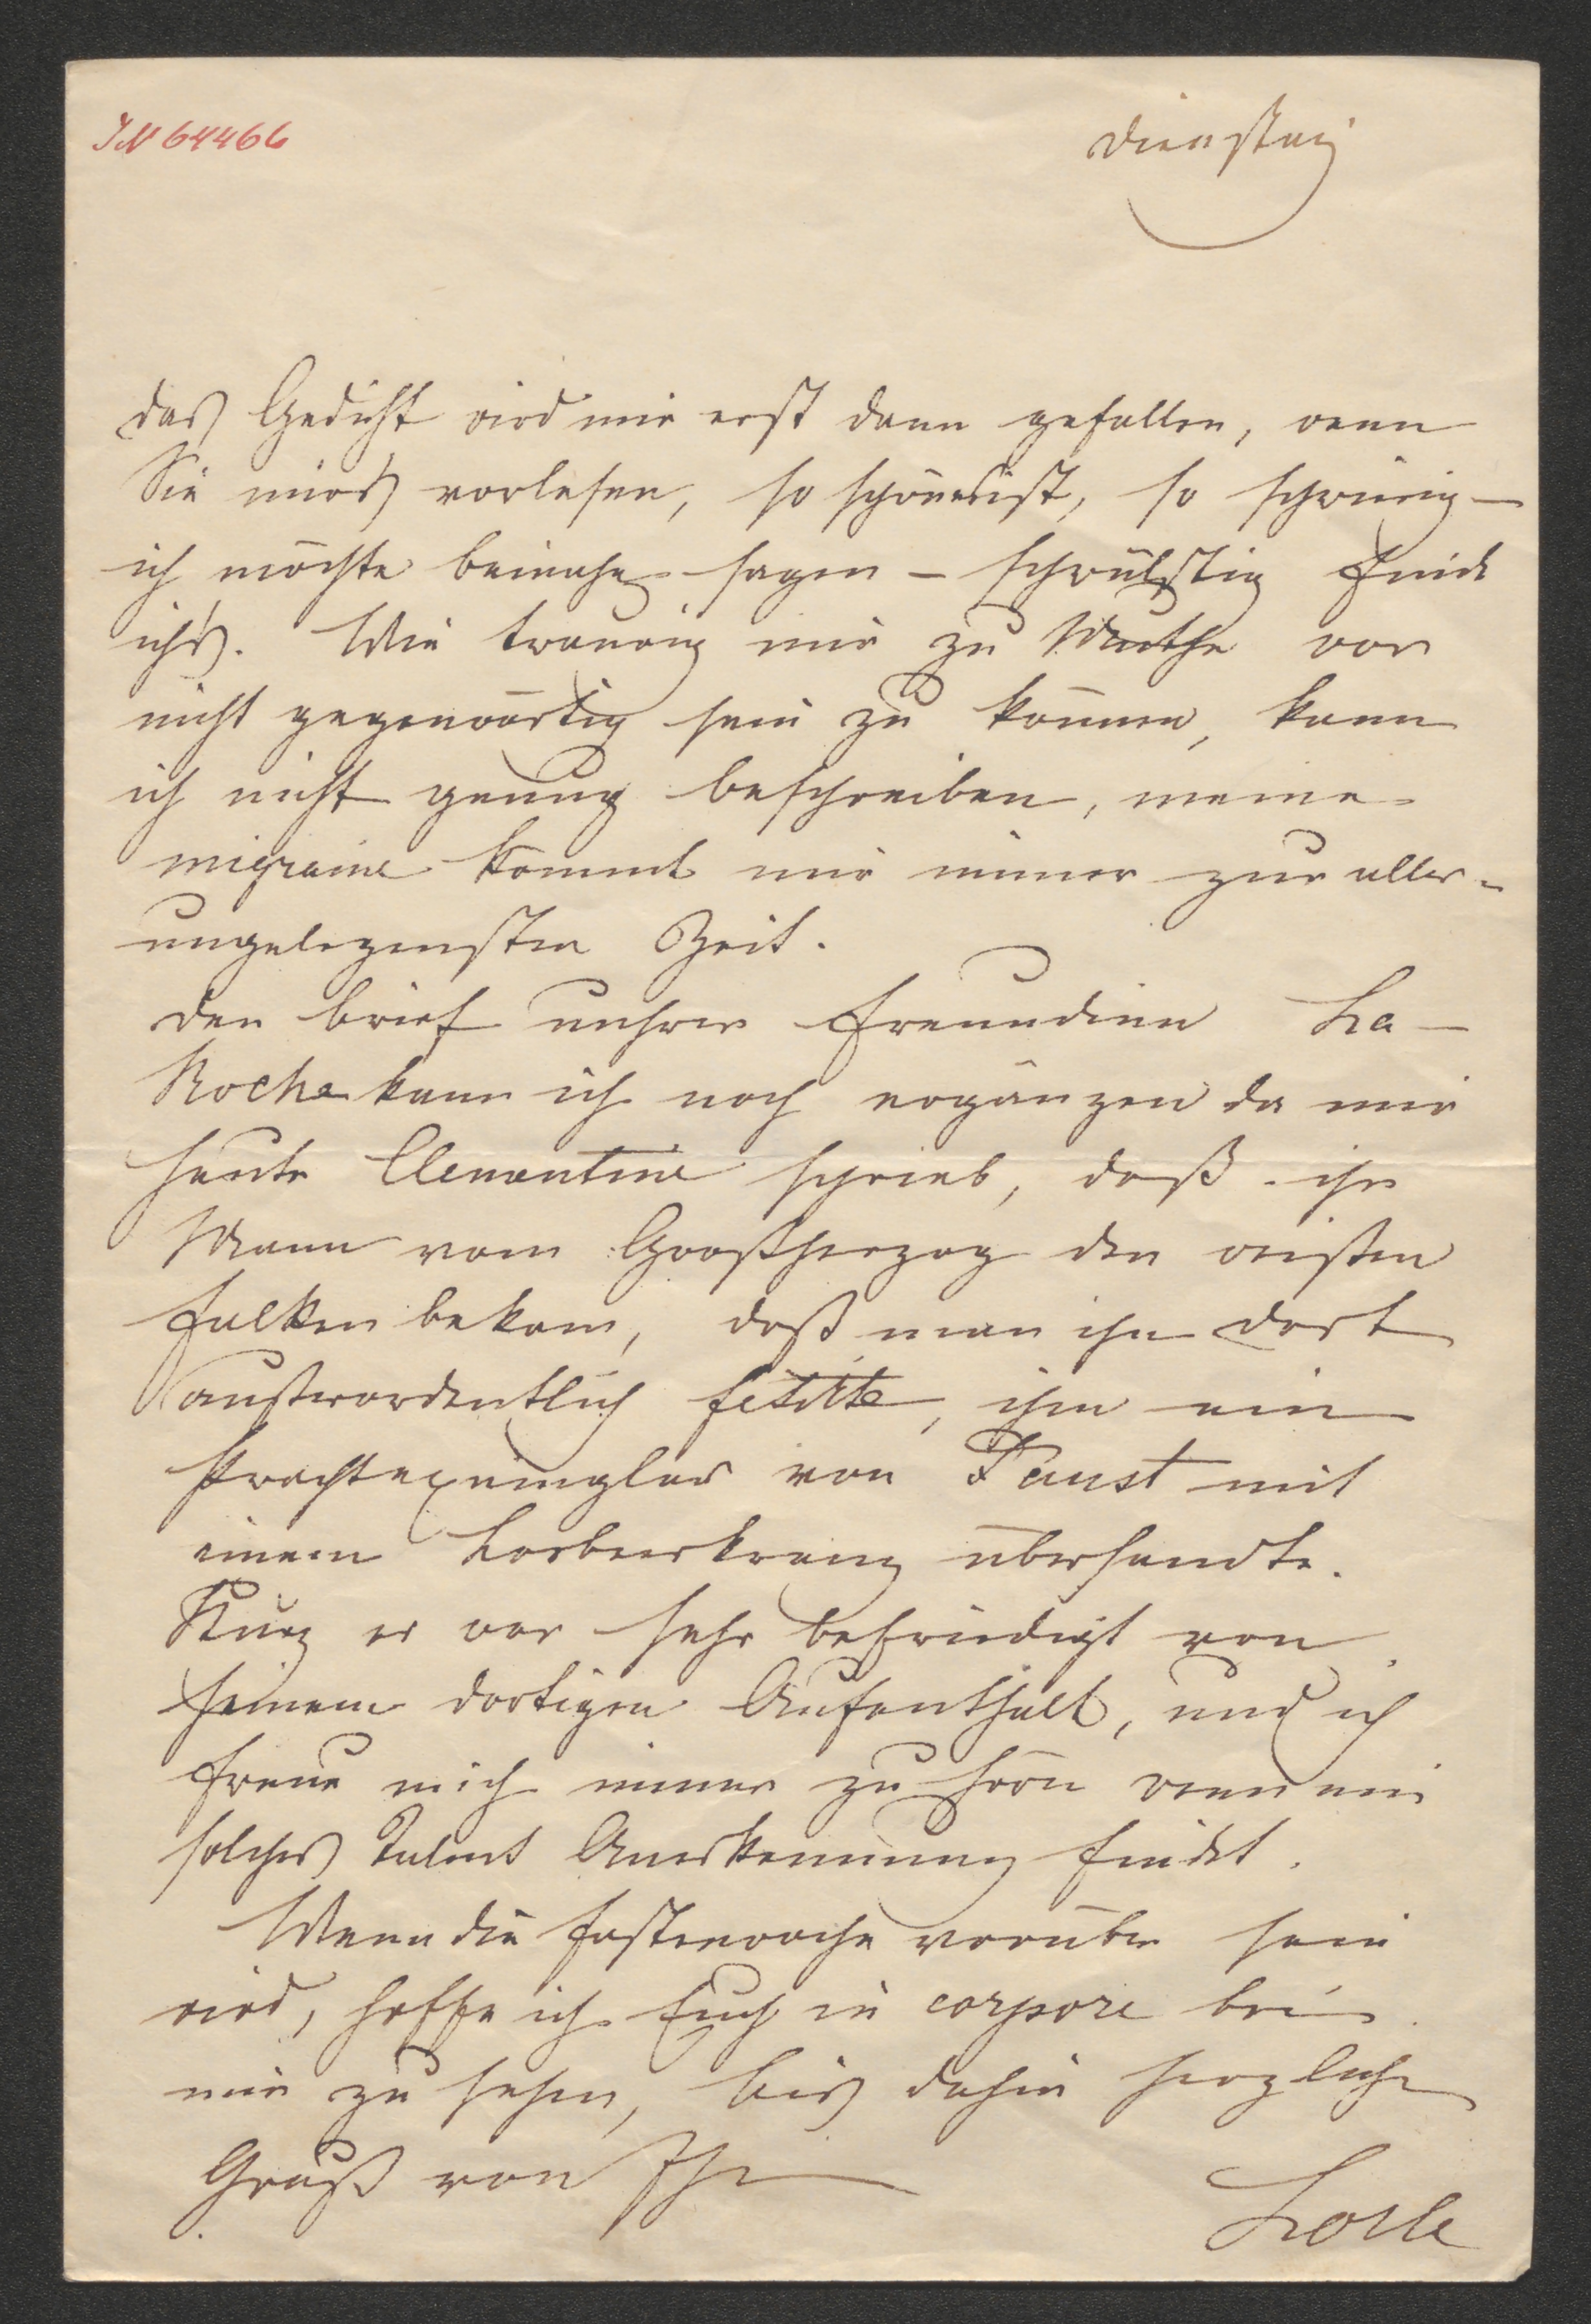 IN 64466
Dienstag
Das Gedicht wird mir erst dann gefallen, wenn
Sie mirs vorlesen, so schön es ist, so schwierig –
ich möchte beinahe sagen – schwülstig find
ichs. Wie traurig mir zu Muthe war
nicht gegenwärtig sein zu können, kann
ich nicht genug beschreiben, meine
migraine kommt mir immer zur aller-
ungelegensten Zeit.
Den Brief unsrer Freundinn La-
Roche kann ich noch ergänzen da mir
heute Clementine schrieb, daß ihr
Mann vom Großherzog den weißen
Falken bekam, daß man ihn dort
außerordentlich fetirte, ihm ein
Prachtexemplar von Faust mit
einem Lorbeerkranz übersandte.
Kurz er war sehr befriedigt von
seinem dortigen Aufenthalt, und ich
freue mich immer zu hören wenn ein
solches Talent Anerkennung findet.
Wenn die Fastenwoche vorüber sein
wird, hoffe ich Euch in corpore bei
mir zu sehen, bis dahin herzliche
Gruß von Ihr